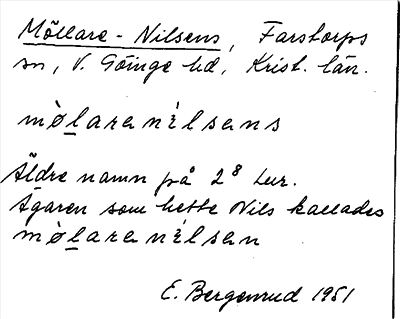 Möllare-Nilsens, Farstorps
sn, V. Göinge hd, Krist. län.
mølarenìlsens
Äldre namn på 2⁸ Lur.
Ägaren som hette Nils kallades
mølarenìlsen
E. Bergenrud 1951